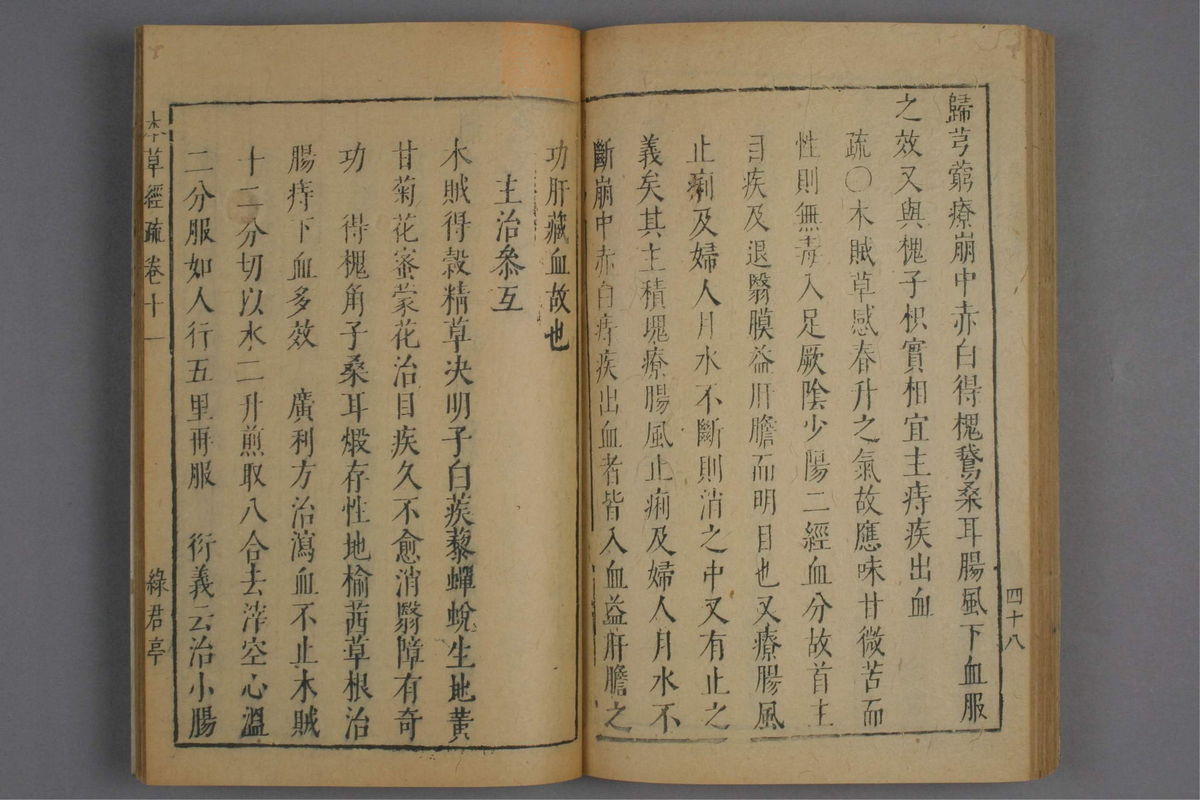 歸芎藭療崩中赤白得槐鵞桑耳腸風下血服
之效又與槐子枳實相宜主痔疾出血
疏〇木賊草感春升之氣故應味甘微苦而
性則無毒入足厥陰少陽二經血分故首主
目疾及退翳膜益肝膽而明目也又療腸風
止痢及婦人月水不斷則消之中又有止之
義矣其主積塊療腸風止痢及婦人月水不
斷崩中赤白痔疾出血者皆入血益肝膽之
四十八
功肝藏血故也
主治叅互
木賊得穀精草决明子白蒺藜蟬蛻生地黄
甘菊花蜜蒙花治目疾久不愈消翳障有奇
功 得槐角子桑耳煅存性地榆茜草根治
腸痔下血多效 廣利方治瀉血不止木賊
十二分切以水二升煎取八合去滓空心溫
二分服如人行五里再服 衍義云治小腸
本草經疏 卷十一 綠君亭